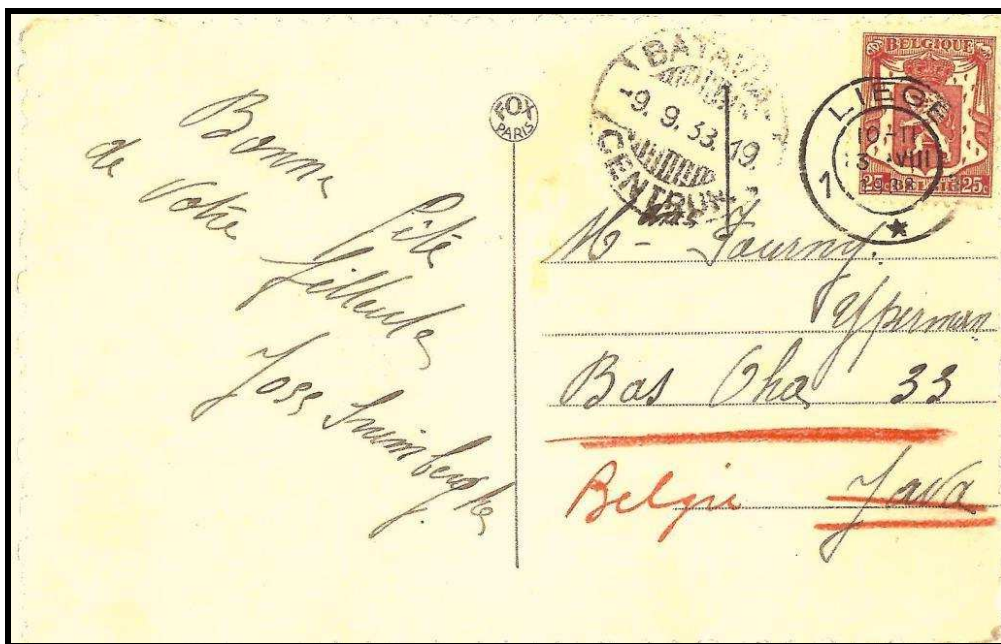 Bonne Fête
de Votre filleule
Joss
FOX
PARIS
BATAVIA
9.9.33.19.
CENTRUM
LIEGE
10-11
VIII
1
BELGIQUE
25
BELGIE
25.
M- Fourny.
Yperman
Bas Oha 33
Belgie Java